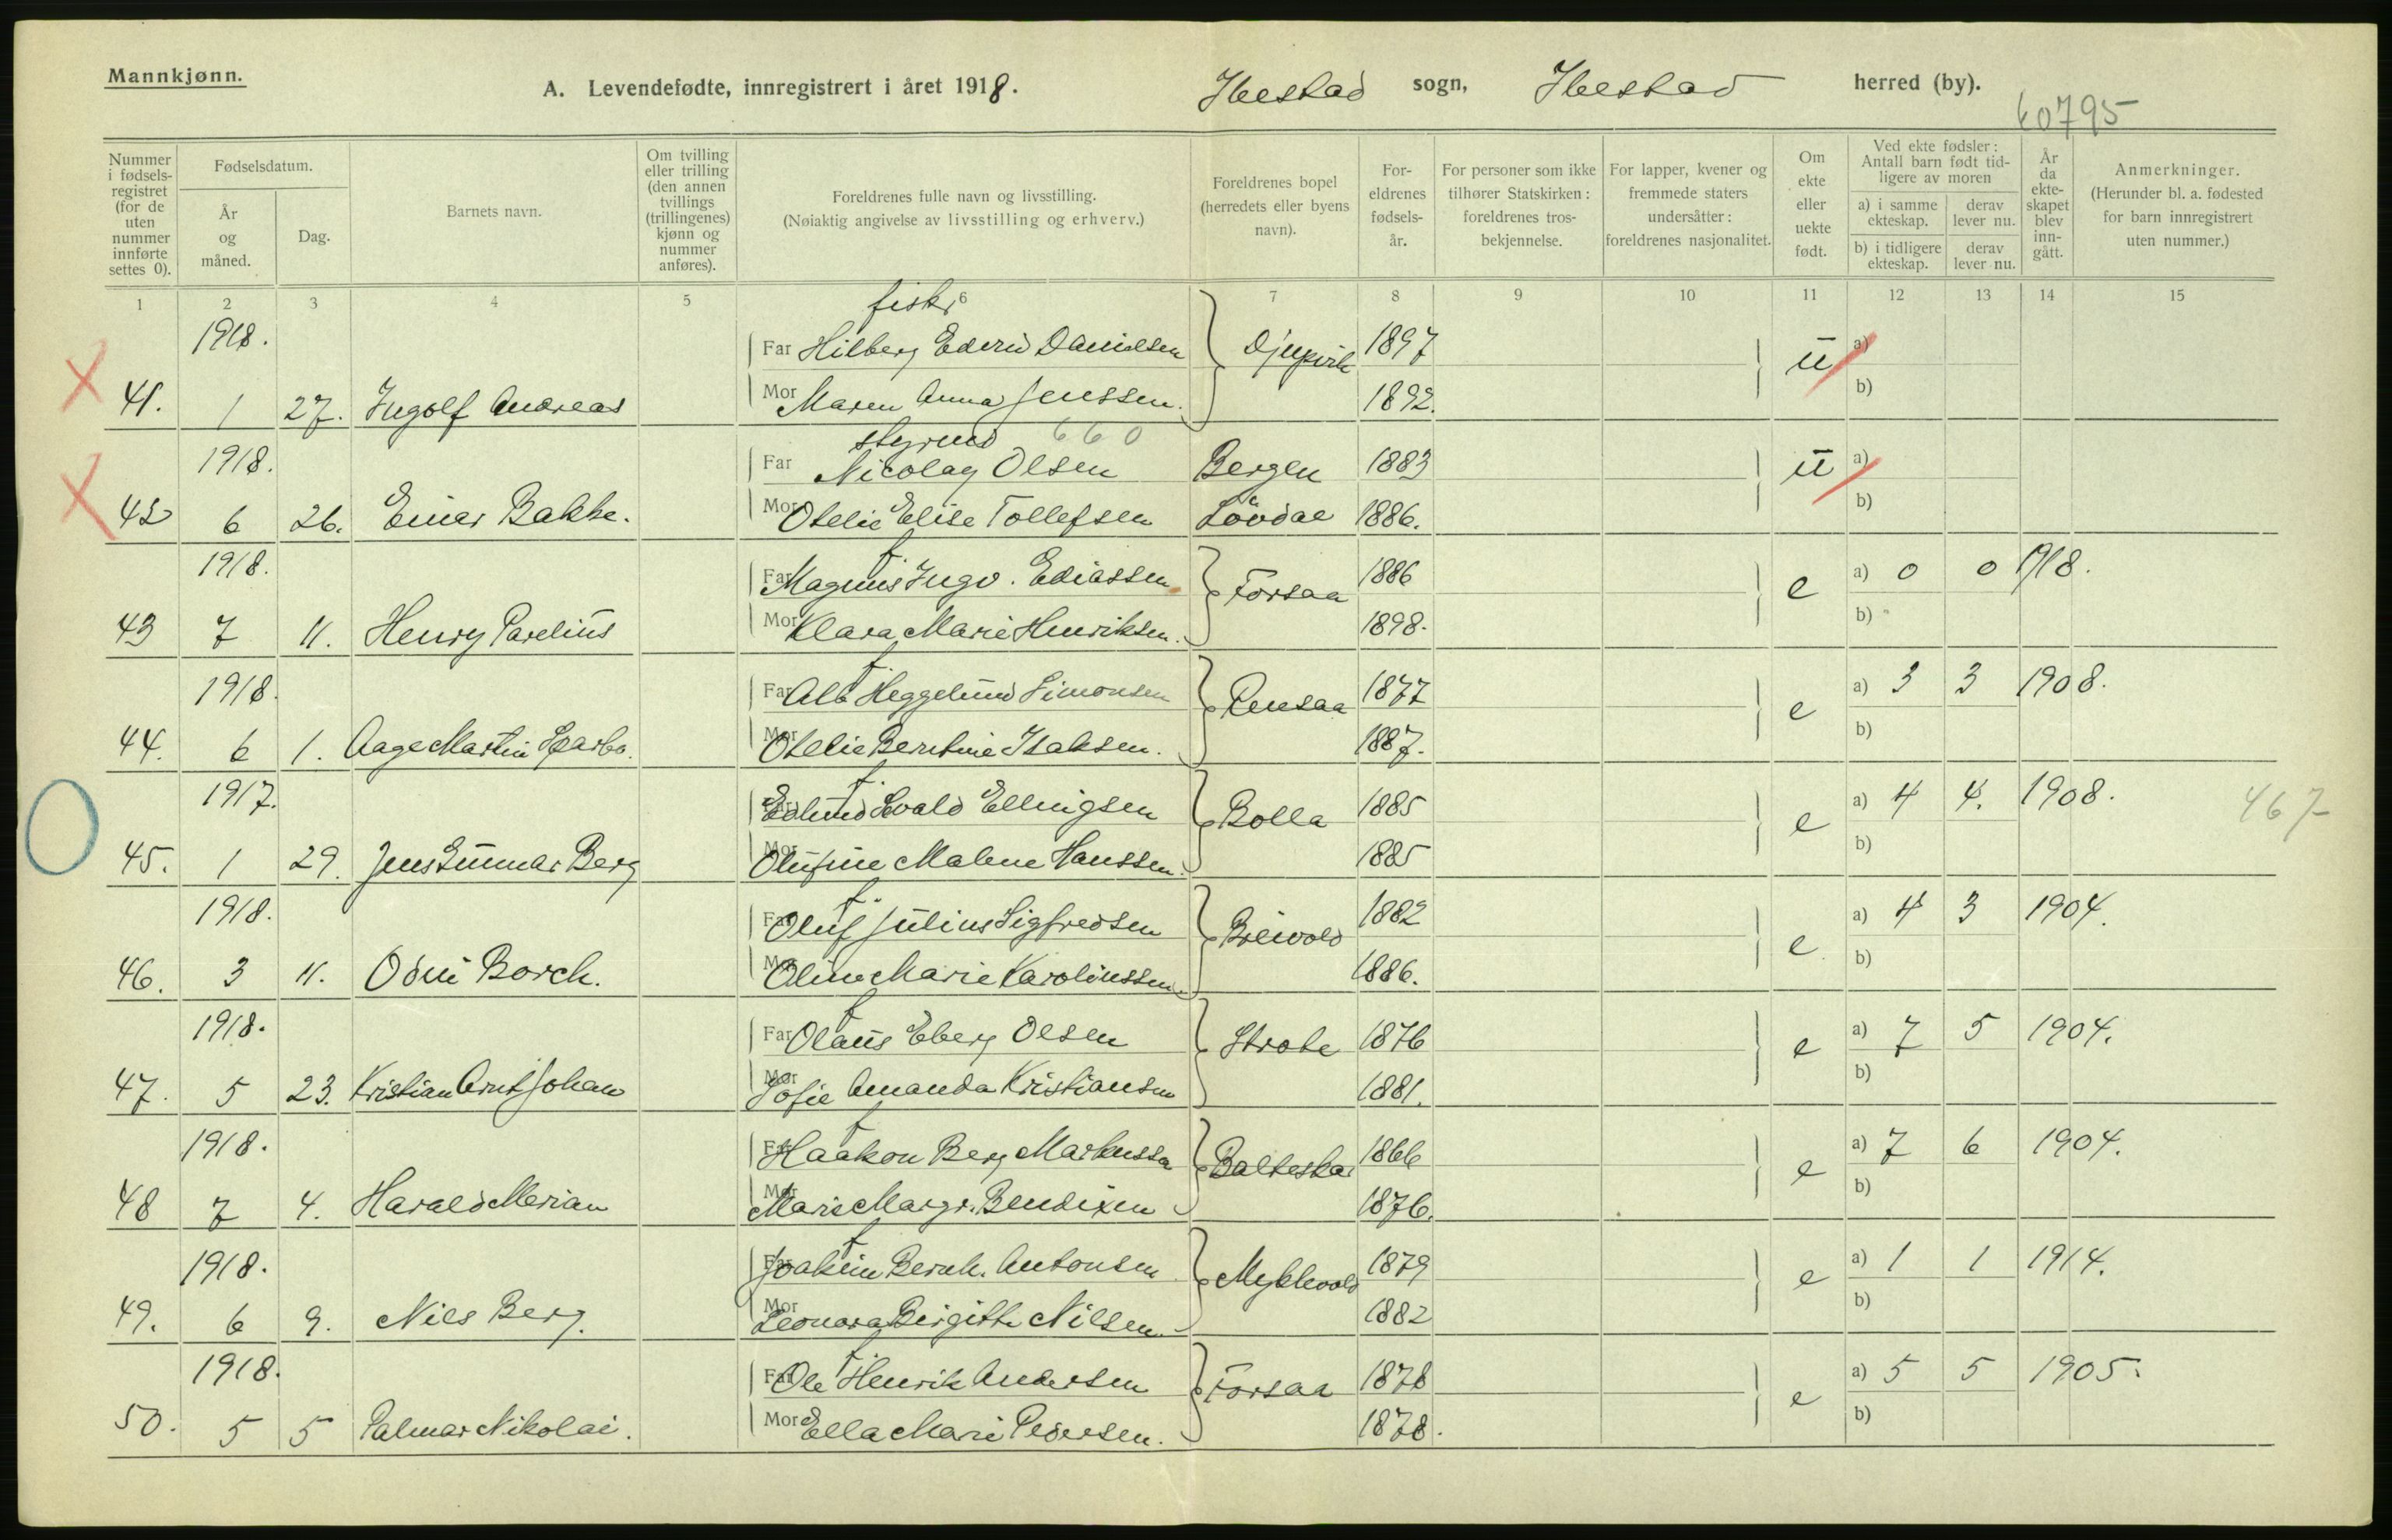 Mannkjønn.
A. Levendefødte, innregistrert i året 1918. Ibestad sogn, Ibestad herred (by).
60795
Nummer i fødsels-registret (for de uten nummer innførte settes 0).
Fødselsdatum.
År og måned.
Dag.
Barnets navn.
Om tvilling eller trilling (den annen tvillings (trillingenes) kjønn og nummer anføres).
Foreldrenes fulle navn og livsstilling.
(Nøiaktig angivelse av livsstilling og erhverv.)
Foreldrenes bopel (herredets eller byens navn).
For-eldrenes fødsels-år.
For personer som ikke tilhører Statskirken: foreldrenes tros-bekjennelse.
For lapper, kvener og fremmede staters undersåtter: foreldrenes nasjonalitet.
Om ekte eller uekte født.
Ved ekte fødsler: Antall barn født tid-ligere av moren
a) i samme ekteskap.
derav lever nu.
b) i tidligere ekteskap.
derav lever nu.
År da ekte-skapet blev inn-gått.
Anmerkninger.
(Herunder bl. a. fødested for barn innregistrert uten nummer.)
1 2 3 4 5 6 7 8 9 10 11 12 13 14 15
fisk.
1918. Far Hilberg Edvin Danielsen Djupvik 1897 u a)
41. 1 27. Ingolf Andreas Mor Maren Anna Jenssen. 1892. b)
styrmd 660
1918. Far Nicolay Olsen Bergen 1883 u a)
42 6 26. Einar Bakke. Mor Otelie Elise Tollefsen Løvdal 1886. b)
f.
1918. Far Magnus Ingv. Ediassen Forsaa 1886 e a) 0 0 1918.
43 7 11. Henry Parelius Mor Klara Marie Henriksen. 1898. b)
f.
1918. Far Alb Heggelund Simonsen Rensaa 1877 e a) 3 3 1908.
44. 6 1. Aage Martin Mor Otelie Berntine Isaksen. 1887. b)
f.
1917. Far Edlund Sevald Ellingsen Bolla 1885 e a) 4 4. 1908. 467
45. 1 29. Jens Gunnar Berg Mor Olufine Malene Hanssen. 1885 b)
f.
1918. Far Oluf Julius Sigfredsen Breivold 1882 e a) 4 3 1904.
46. 3 11. Odin Borch. Mor Oline Marie Karolinssen. 1886. b)
f
1918. Far Olaus Eberg Olsen 1876 e a) 7 5 1904.
47. 5 23. Kristian Arnt Johan Mor Sofie Amanda Kristiansen 1881. b)
f
1918. Far Haakon Berg Markussen Balteskar 1866 e a) 7 6 1904.
48 7 4. Harald Merian Mor Marie Margr. Bendixen 1876. b)
f
1918. Far Joakim Bernh. Antonsen Myklevold 1879 e a) 1 1 1914.
49. 6 9. Nils Berg. Mor Leonora Birgitte Nilsen. 1882 b)
f
1918. Far Ole Henrik Andersen Forsaa 1878 e a) 5 5 1905.
50. 5 5 Palmar Nikolai. Mor Ella Marie Pedersen. 1878. b)